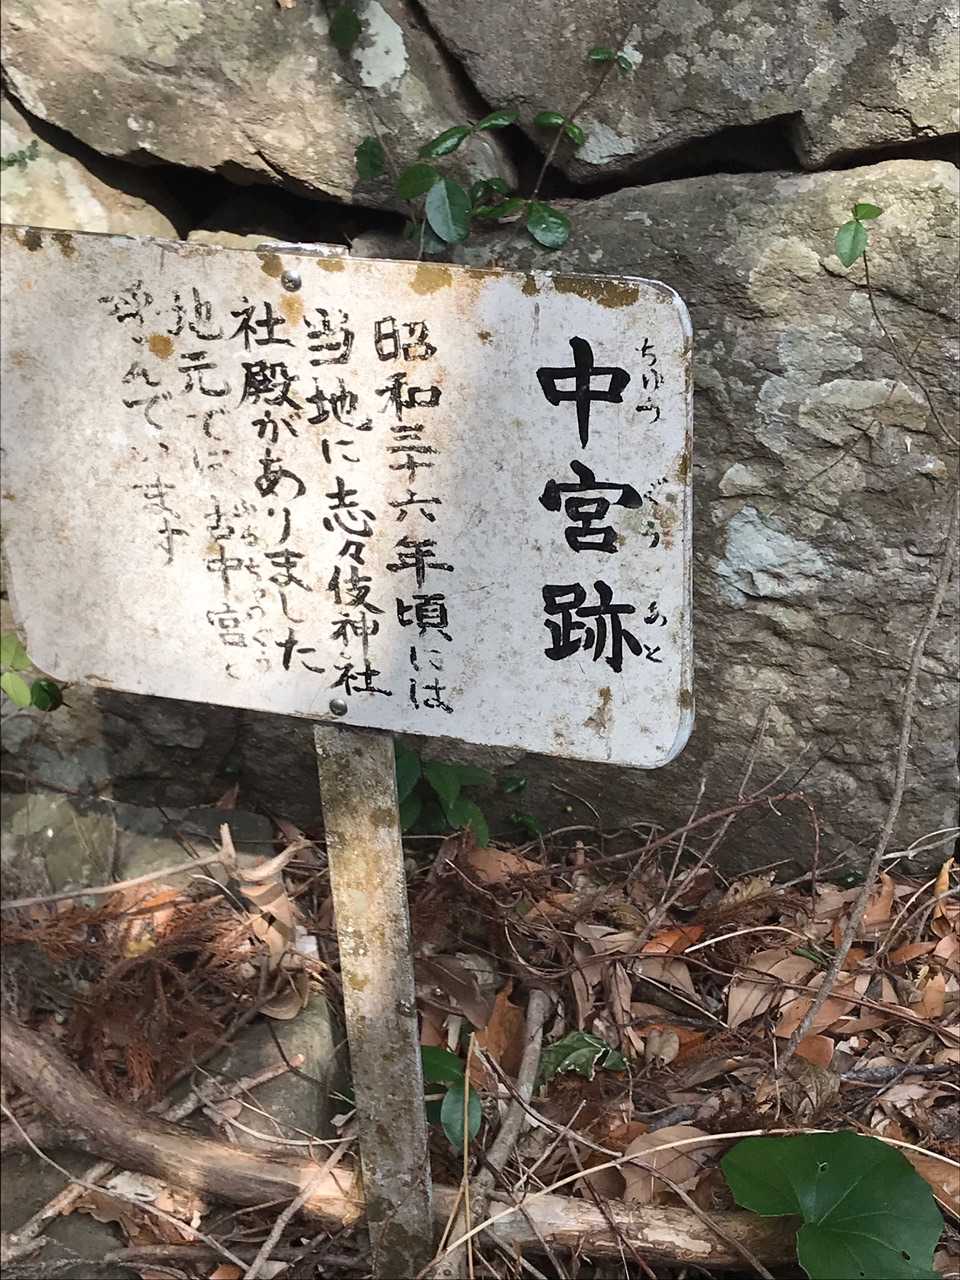 中宮跡
ちゅう ぐう あと
昭和三十六年頃には
当地に志々伎神社
社殿がありました
地元では古中宮と
ふるちゅうぐう
呼んでいます